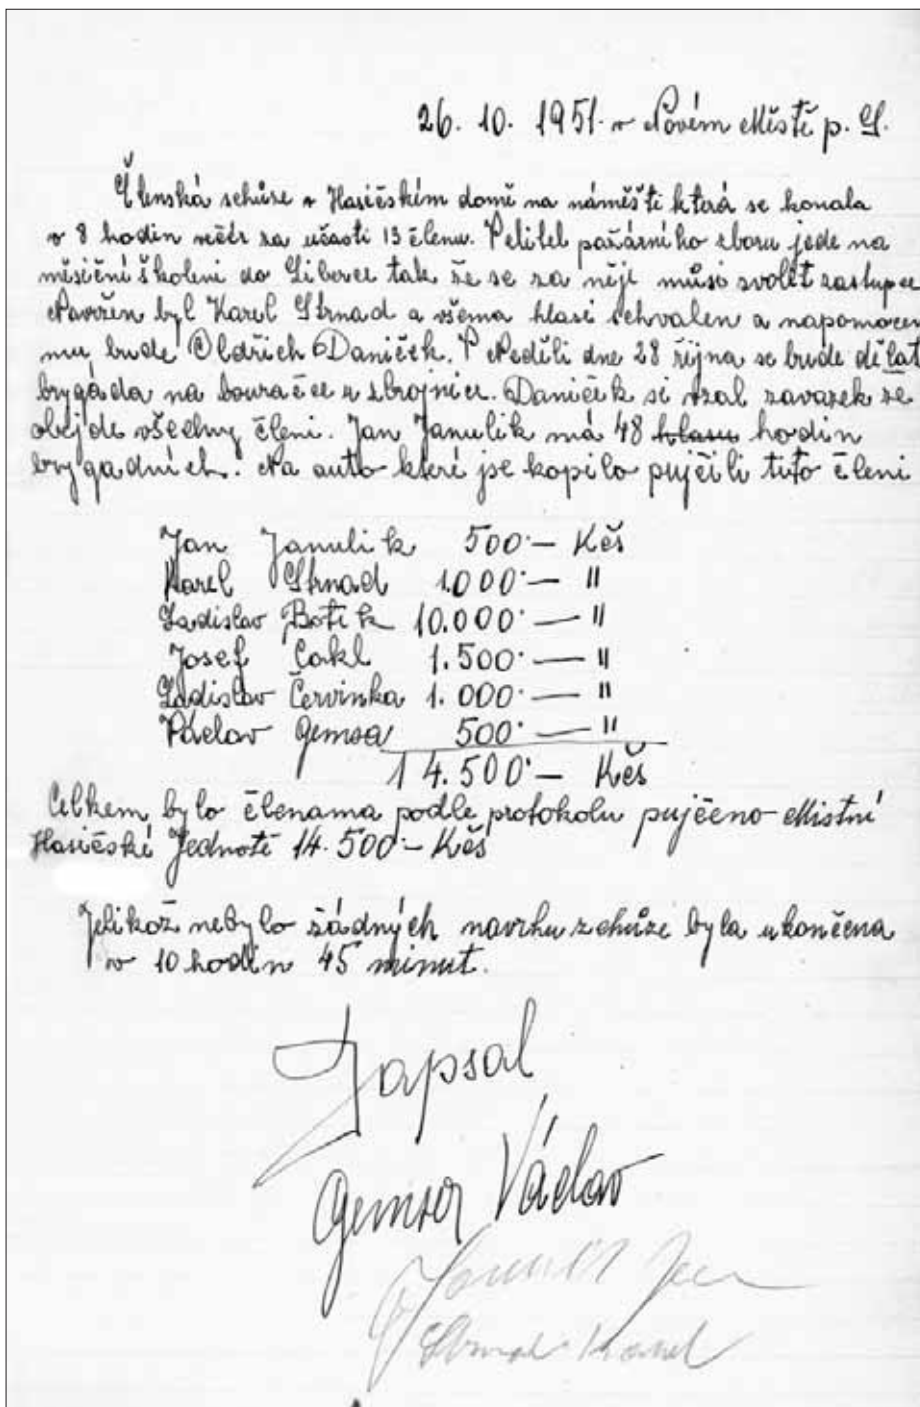 26. 10. 1951. v Novém Městě p. S.
Členská schůze v Hasičském domě na náměstí která se konala
v 8 hodin večér za učasti 13 členu. Velitel požárního sboru jede na
měsiční školeni do Liberce tak že se za něje můsi svolit zastupce
Navržen byl Karel Strnad a všema hlasi schvalen a napomocen
mu bude Oldřich Daniček. V Neděli dne 28 řijna se bude dělat
brygáda na bouračce u zbrojnice. Daniček si vzal zavazek že
objede všechny členi. Jan Janulik má 48 hlasu hodin
brygadnich. Na auto které jse kopilo pujčili tito členi
Jan Janulik 500·— Kčs
Karel Strnad 1.000·— "
Ladislav Botik 10.000·— "
Josef Cakl 1.500·— "
Ladislav Červinka 1.000·— "
Václav Gemsa 500·— "
14.500·— Kčs
Celkem bylo členama podle protokolu pujčeno Mistní
Hasičské Jednotě 14.500·- Kčs
Jelikož nebylo žádných navrhu zchůze byla ukončena
v 10 hodin 45 minut.
Zapsal
Gemsa Václav
Strnad Karel